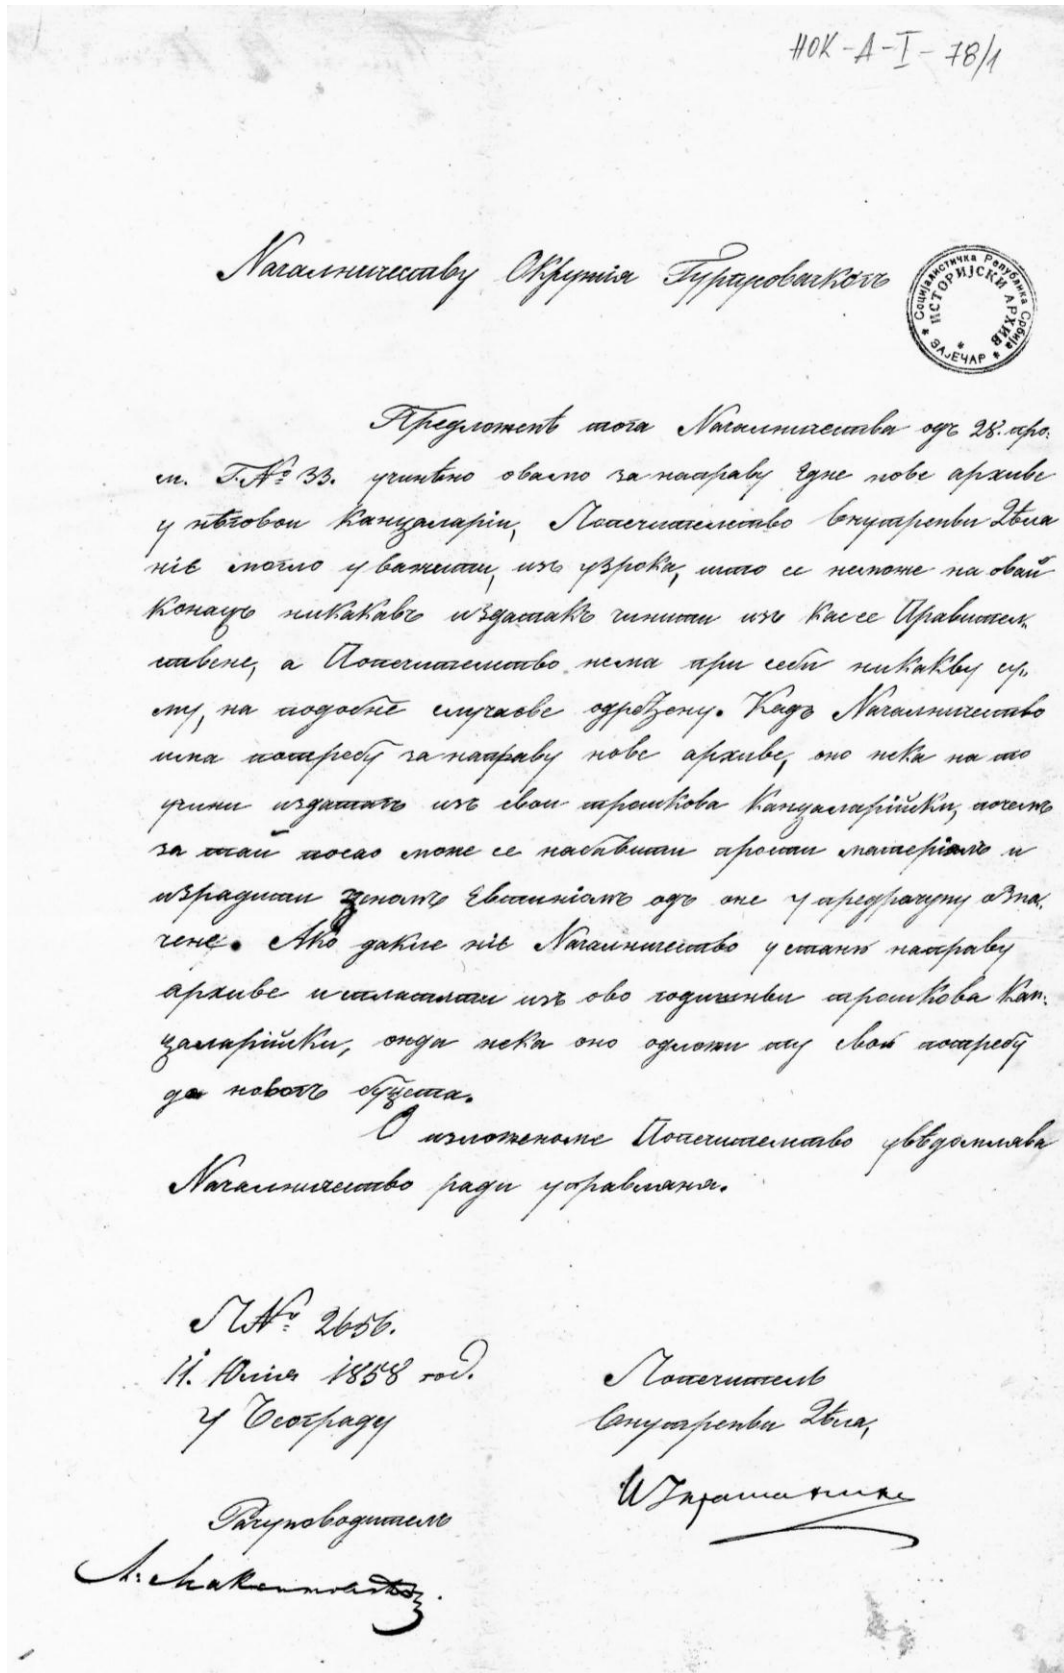 НОК-А-I-78/1
Началничеству Окружія Гургусовачкогъ
Социјалистичка Република Србија
ИСТОРИЈСКИ АРХИВ
ЗАЈЕЧАР
Предложенѣ тога Началничества одъ 28. про.
м. Г.№ 33. учинѣно овамо за направу єдне нове архиве
у нѣговои Канцеларіи, Попечителство Внутренньи Дѣла
ніє могло уважити, изъ узрока, што се неможе на овай
конацъ никакавъ издатакъ чинити изъ кассе Правител.
ствене, а Попечителство нема при себи никакву су.
му, на подобне случаєве одређену. Кадъ Началничество
има потребу за направу нове архиве, оно нека на то
учини издатакъ изъ свои трошкова Канцеларійски, почемъ
за тай посао може се набавити прости матеріалъ и
израдити ценомъ євтиніомъ одъ оне у предрачуну озна.
чене. Ако дакле ніє Началничество у станю направу
архиве исплатити изъ ово годишньи трошкова Кан.
целарійски, онда нека оно одложи ту свою потребу
до новогъ буџета.
О изложеноме Попечителство увѣдомлява
Началничество ради управляня.
П№ 2656.
11. Юлія 1858 год.
у Београду
Попечитель
Внутренньи Дѣла,
Рачуноводитель